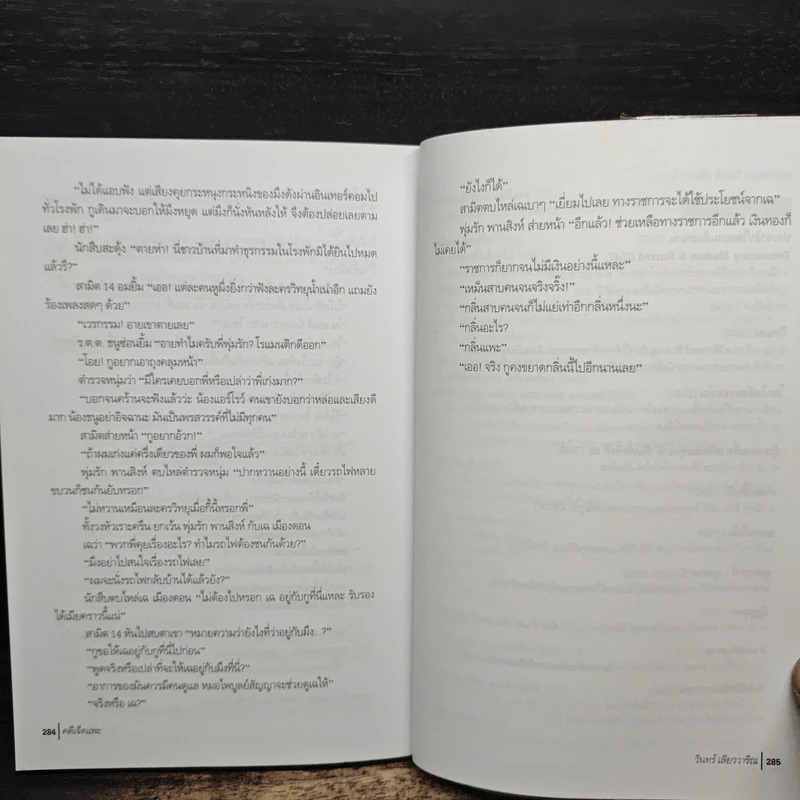 “ไม่ได้แอบฟัง แต่เสียงคุยกระหนุงกระหนิงของมึงดังผ่านอินเทอร์คอมไป
ทั่วโรงพัก กูเดินมาจะบอกให้มึงหยุด แต่มึงก็นั่งหันหลังให้ จึงต้องปล่อยเลยตาม
เลย ฮ่า! ฮ่า!”
นักสืบสะดุ้ง “ตายห่า! นี่ชาวบ้านที่มาทำธุรกรรมในโรงพักมิได้ยินไปหมด
แล้วรึ?”
สามิต 14 อมยิ้ม “เออ! แต่ละคนหูผึ่งยิ่งกว่าฟังละครวิทยุน้ำเน่าอีก แถมยัง
ร้องเพลงสดๆ ด้วย”
“เวรกรรม! อายเขาตายเลย”
ร.ต.ต. ธนูซ่อนยิ้ม “อายทำไมครับพี่พุ่มรัก? โรแมนติกดีออก”
“โอย! กูอยากเอาถุงคลุมหน้า”
ตำรวจหนุ่มว่า “มีใครเคยบอกพี่หรือเปล่าว่าพี่เก่งมาก?”
“บอกจนคร้านจะฟังแล้วว่ะ น้องแอร์โรว์ คนเขายังบอกว่าหล่อและเสียงดี
มาก น้องธนูอย่าอิจฉานะ มันเป็นพรสวรรค์ที่ไม่มีทุกคน”
สามิตส่ายหน้า “กูอยากอ้วก!”
“ถ้าผมเก่งแค่ครึ่งเดียวของพี่ ผมก็พอใจแล้ว”
พุ่มรัก พานสิงห์ ตบไหล่ตำรวจหนุ่ม “ปากหวานอย่างนี้ เดี๋ยวรถไฟหลาย
ขบวนก็ชนกันยับหรอก”
“ไม่หวานเหมือนละครวิทยุเมื่อกี้นี้หรอกพี่”
ทั้งวงหัวเราะครืน ยกเว้น พุ่มรัก พานสิงห์ กับเฉ เมืองดอน
เฉว่า “พวกพี่คุยเรื่องอะไร? ทำไมรถไฟต้องชนกันด้วย?”
“มึงอย่าไปสนใจเรื่องรถไฟเลย”
“ผมจะนั่งรถไฟกลับบ้านได้แล้วยัง?”
นักสืบตบไหล่เฉ เมืองดอน “ไม่ต้องไปหรอก เฉ อยู่กับกูที่นี่แหละ รับรอง
ได้เมียคราวนี้แน่”
สามิต 14 หันไปสบตาเขา “หมายความว่ายังไงที่ว่าอยู่กับมึง...?”
“กูขอให้เฉอยู่กับกูที่นี่ไปก่อน”
“พูดจริงหรือเปล่าที่จะให้เฉอยู่กับมึงที่นี่?”
“อาการของมันควรมีคนดูแล หมอไพบูลย์สัญญาจะช่วยดูเฉให้”
“จริงหรือ เฉ?”
284 | คดีเจ็ดแพะ
“ยังไงก็ได้”
สามิตตบไหล่เฉเบาๆ “เยี่ยมไปเลย ทางราชการจะได้ใช้ประโยชน์จากเฉ”
พุ่มรัก พานสิงห์ ส่ายหน้า “อีกแล้ว! ช่วยเหลือทางราชการอีกแล้ว เงินทองก็
ไม่เคยได้”
“ราชการก็ยากจนไม่มีเงินอย่างนี้แหละ”
“เหม็นสาบคนจนจริงจริ๊ง!”
“กลิ่นสาบคนจนก็ไม่แย่เท่าอีกกลิ่นหนึ่งนะ”
“กลิ่นอะไร?
“กลิ่นแพะ”
“เออ! จริง กูคงขยาดกลิ่นนี้ไปอีกนานเลย”
วินทร์ เลียววาริณ | 285